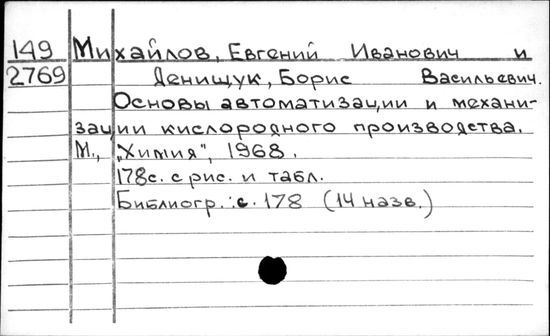 149 Михайлов, Евгений Иванович и
2769 Денищук, Борис Васильевич.
Основы автоматизации и механи-
зации кислородного производства.
М., „Химия", 1968.
178с. с рис. и табл.
Библиогр.: с. 178 (14 назв.)